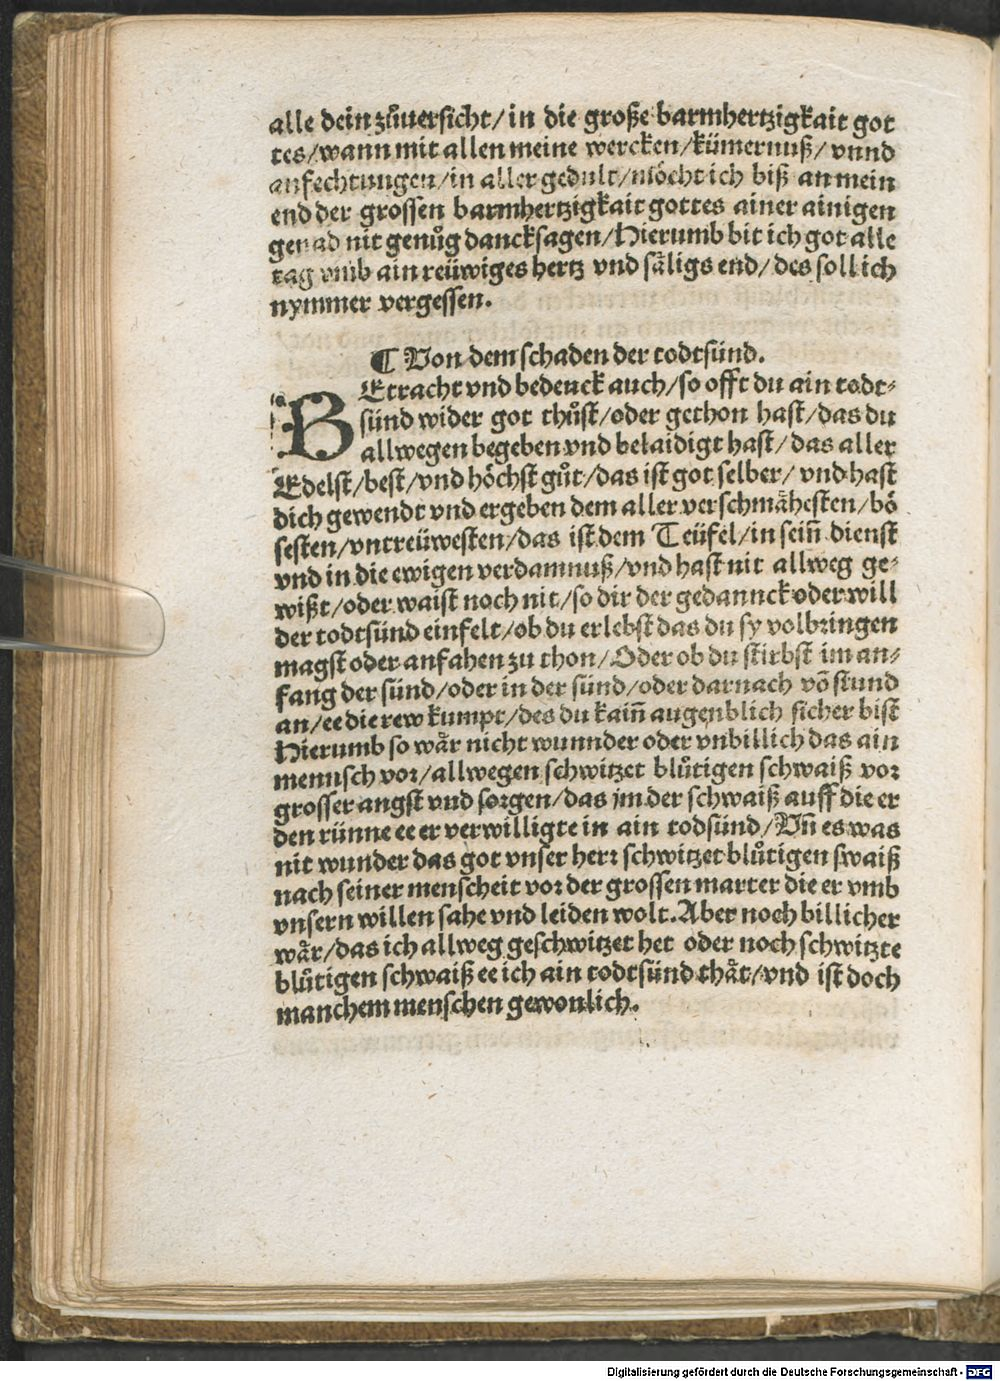 alle dein zůuersicht/in die große barmhertzigkait got
tes/wann mit allen meine wercken/kümernuß/vnnd
anfechtungen/in aller gedult/möcht ich biß an mein
end der grossen barmhertzigkait gottes ainer ainigen
genad nit genůg dancksagen/Hierumb bit ich got alle
tag vmb ain reüwiges hertz vnd säligs end/des soll ich
nymmer vergessen.
¶ Von dem schaden der todtsünd.
BEtracht vnd bedenck auch/so offt du ain todt⸗
sünd wider got thůst/oder gethon hast/das du
allwegen begeben vnd belaidigt hast/das aller
Edelst/best/vnd höchst gůt/das ist got selber/vnd hast
dich gewendt vnd ergeben dem aller verschmähesten/bö
sesten/vntreüwesten/das ist dem Teüfel/in sein̄ dienst
vnd in die ewigen verdamnuß/vnd hast nit allweg ge⸗
wißt/oder waist noch nit/so dir der gedannck oder will
der todtsünd einfelt/ob du erlebst das du sy volbringen
magst oder anfahen zu thon/Oder ob du stirbst im an⸗
fang der sünd/oder in der sünd/oder darnach vō stund
an/ee die rew kumpt/des du kain̄ augenblich sicher bist
Hierumb so wår nicht wunnder oder vnbillich das ain
mennsch vor/allwegen schwitzet blůtigen schwaiß vor
grosser angst vnd sorgen/das jm der schwaiß auff die er
den rünne ee er verwilligte in ain todsünd/Vn̄ es was
nit wunder das got vnser herr schwitzet blůtigen swaiß
nach seiner menscheit vor der grossen marter die er vmb
vnsern willen sahe vnd leiden wolt.Aber noch billicher
wår/das ich allweg geschwitzet het oder noch schwitzte
blůtigen schwaiß ee ich ain todtsünd thåt/vnd ist doch
manchem menschen gewonlich.
Digitalisierung gefördert durch die Deutsche Forschungsgemeinschaft - DFG